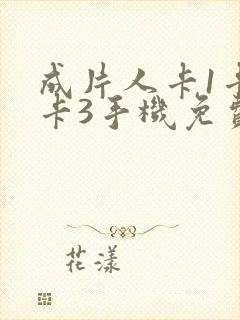 成片人卡1卡
卡3手機免費
花漾